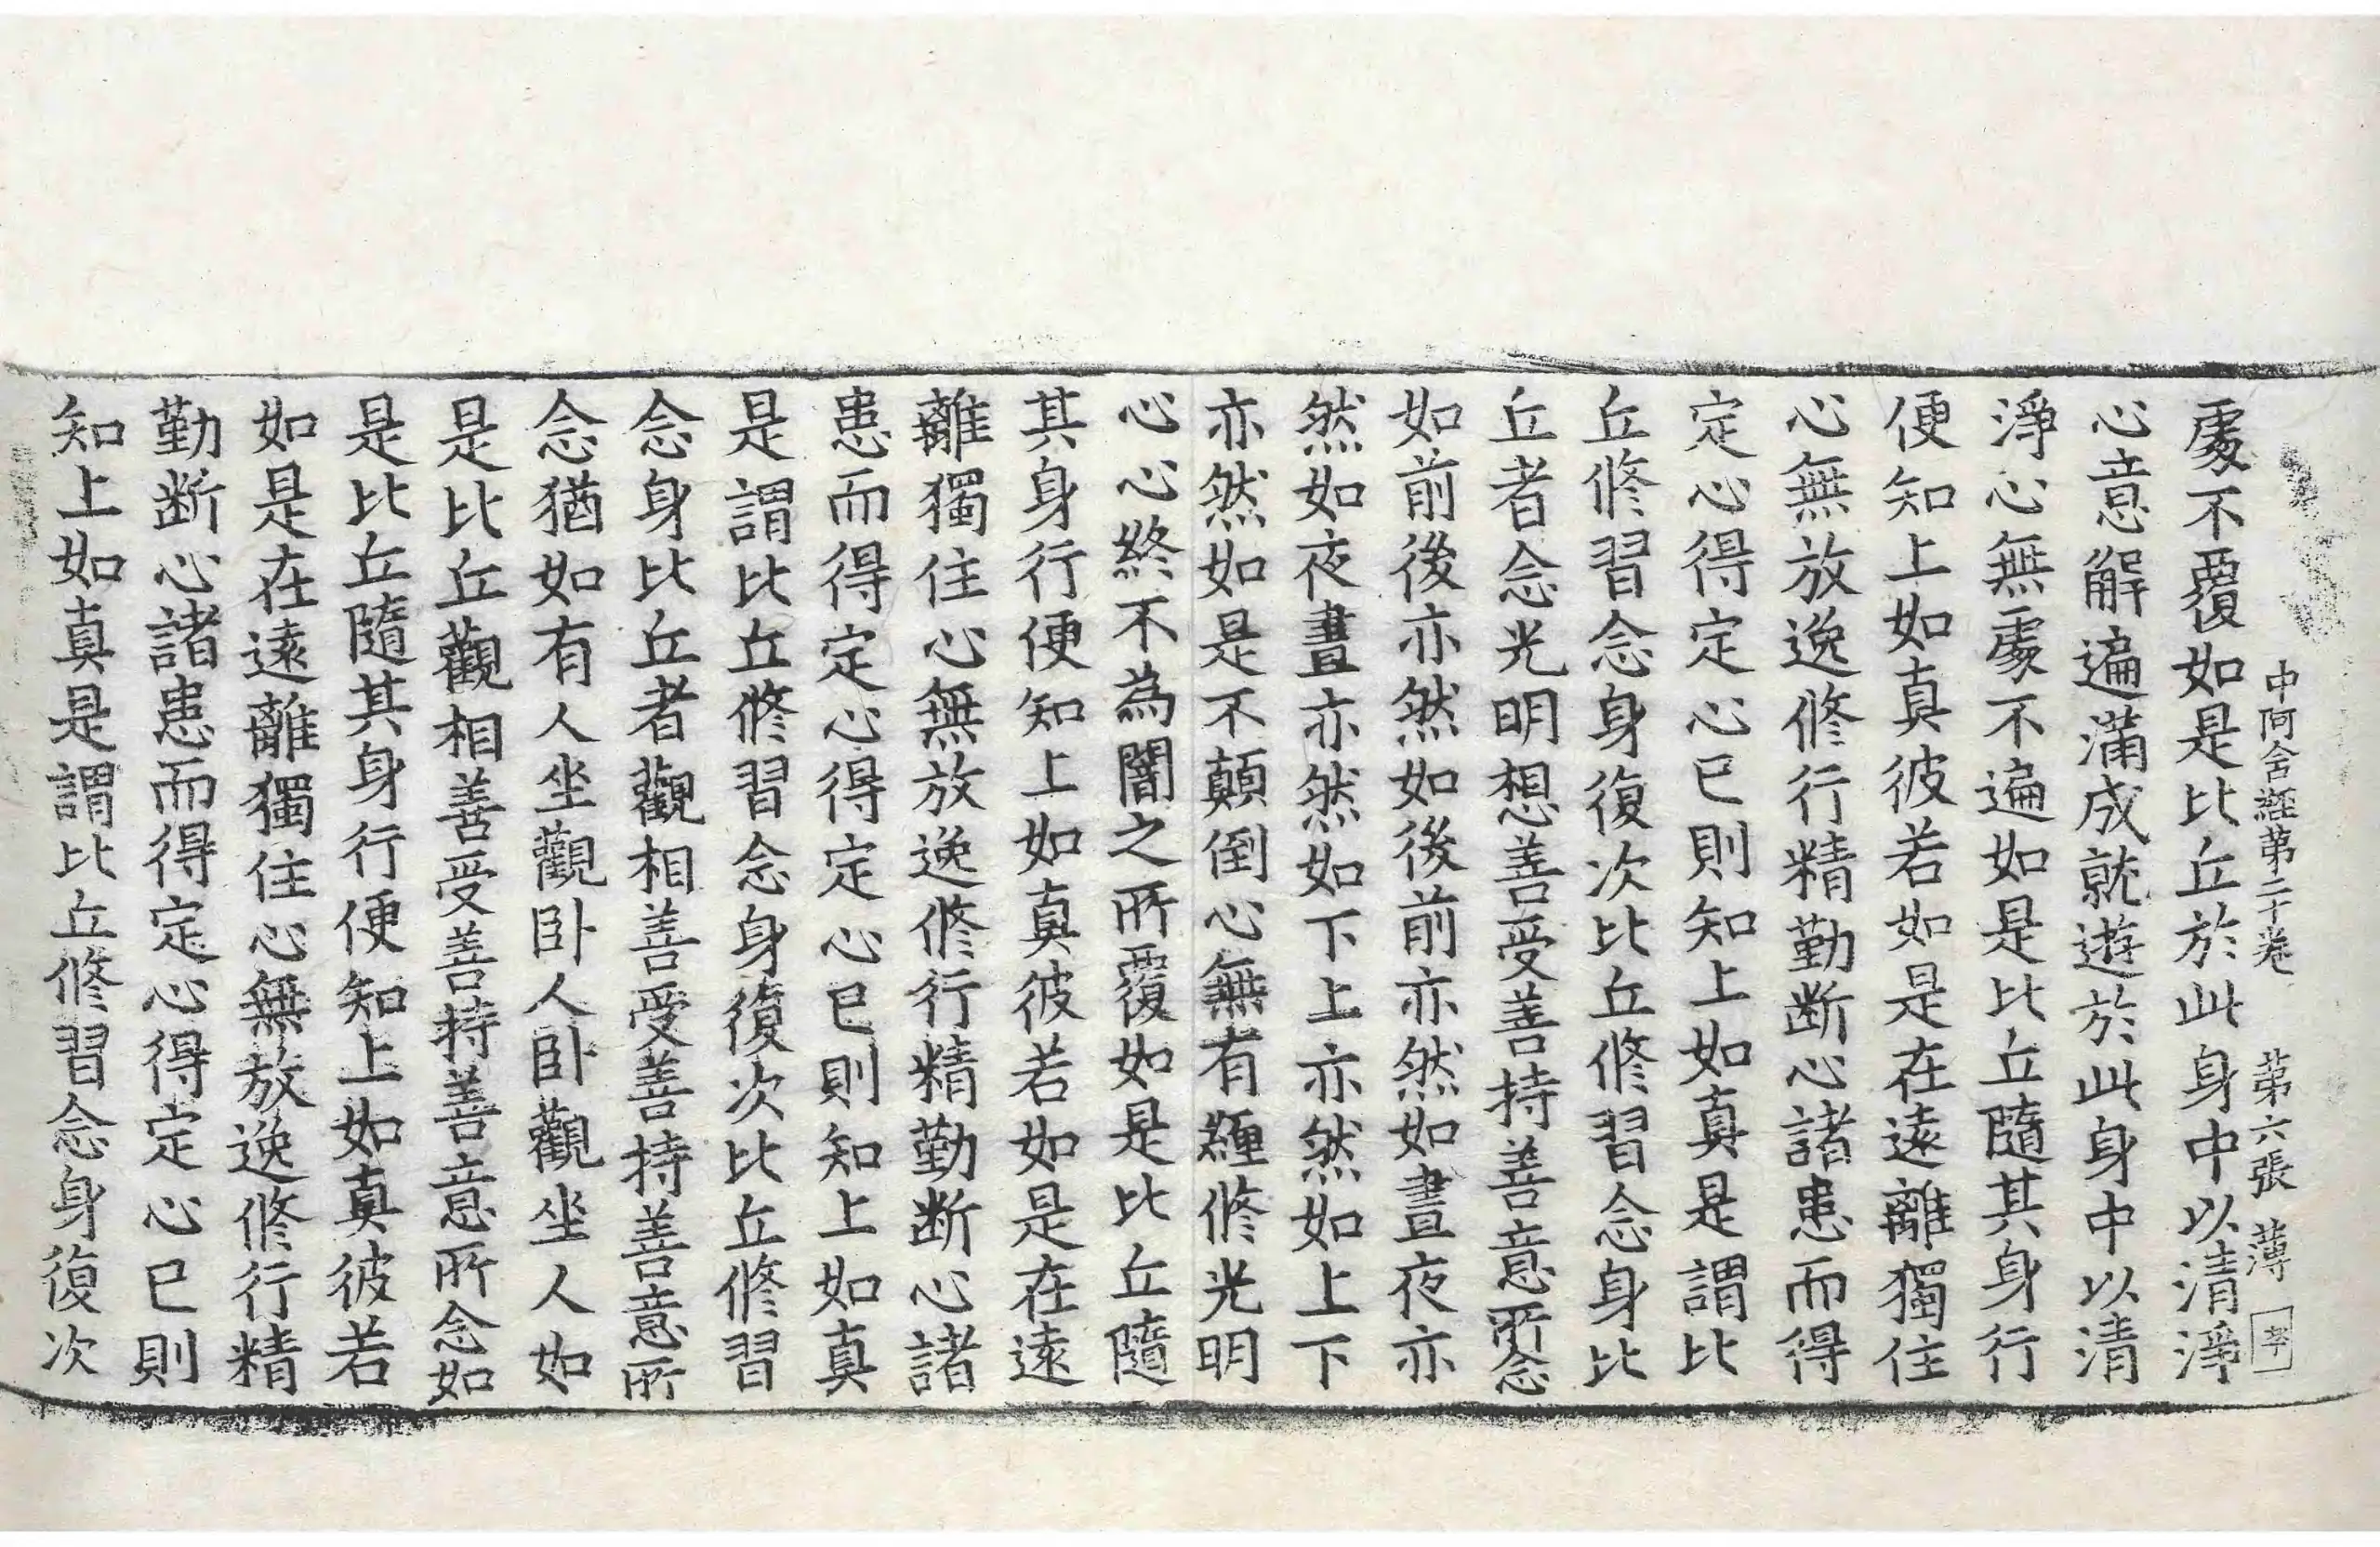 中阿含經第二十卷 第六張 薄
處不覆如是比丘於此身中以清淨
心意解遍滿成就遊於此身中以清
淨心無處不遍如是比丘隨其身行
便知上如真彼若如是在遠離獨住
心無放逸修行精勤斷心諸患而得
定心得定心已則知上如真是謂比
丘修習念身復次比丘修習念身比
丘者念光明想善受善持善意所念
如前後亦然如後前亦然如晝夜亦
然如夜晝亦然如下上亦然如上下
亦然如是不顛倒心無有纏修光明
心心終不為闇之所覆如是比丘隨
其身行便知上如真彼若如是在遠
離獨住心無放逸修行精勤斷心諸
患而得定心得定心已則知上如真
是謂比丘修習念身復次比丘修習
念身比丘者觀相善受善持善意所
念猶如有人坐觀臥人臥觀坐人如
是比丘觀相善受善持善意所念如
是比丘隨其身行便知上如真彼若
如是在遠離獨住心無放逸修行精
勤斷心諸患而得定心得定心已則
知上如真是謂比丘修習念身復次